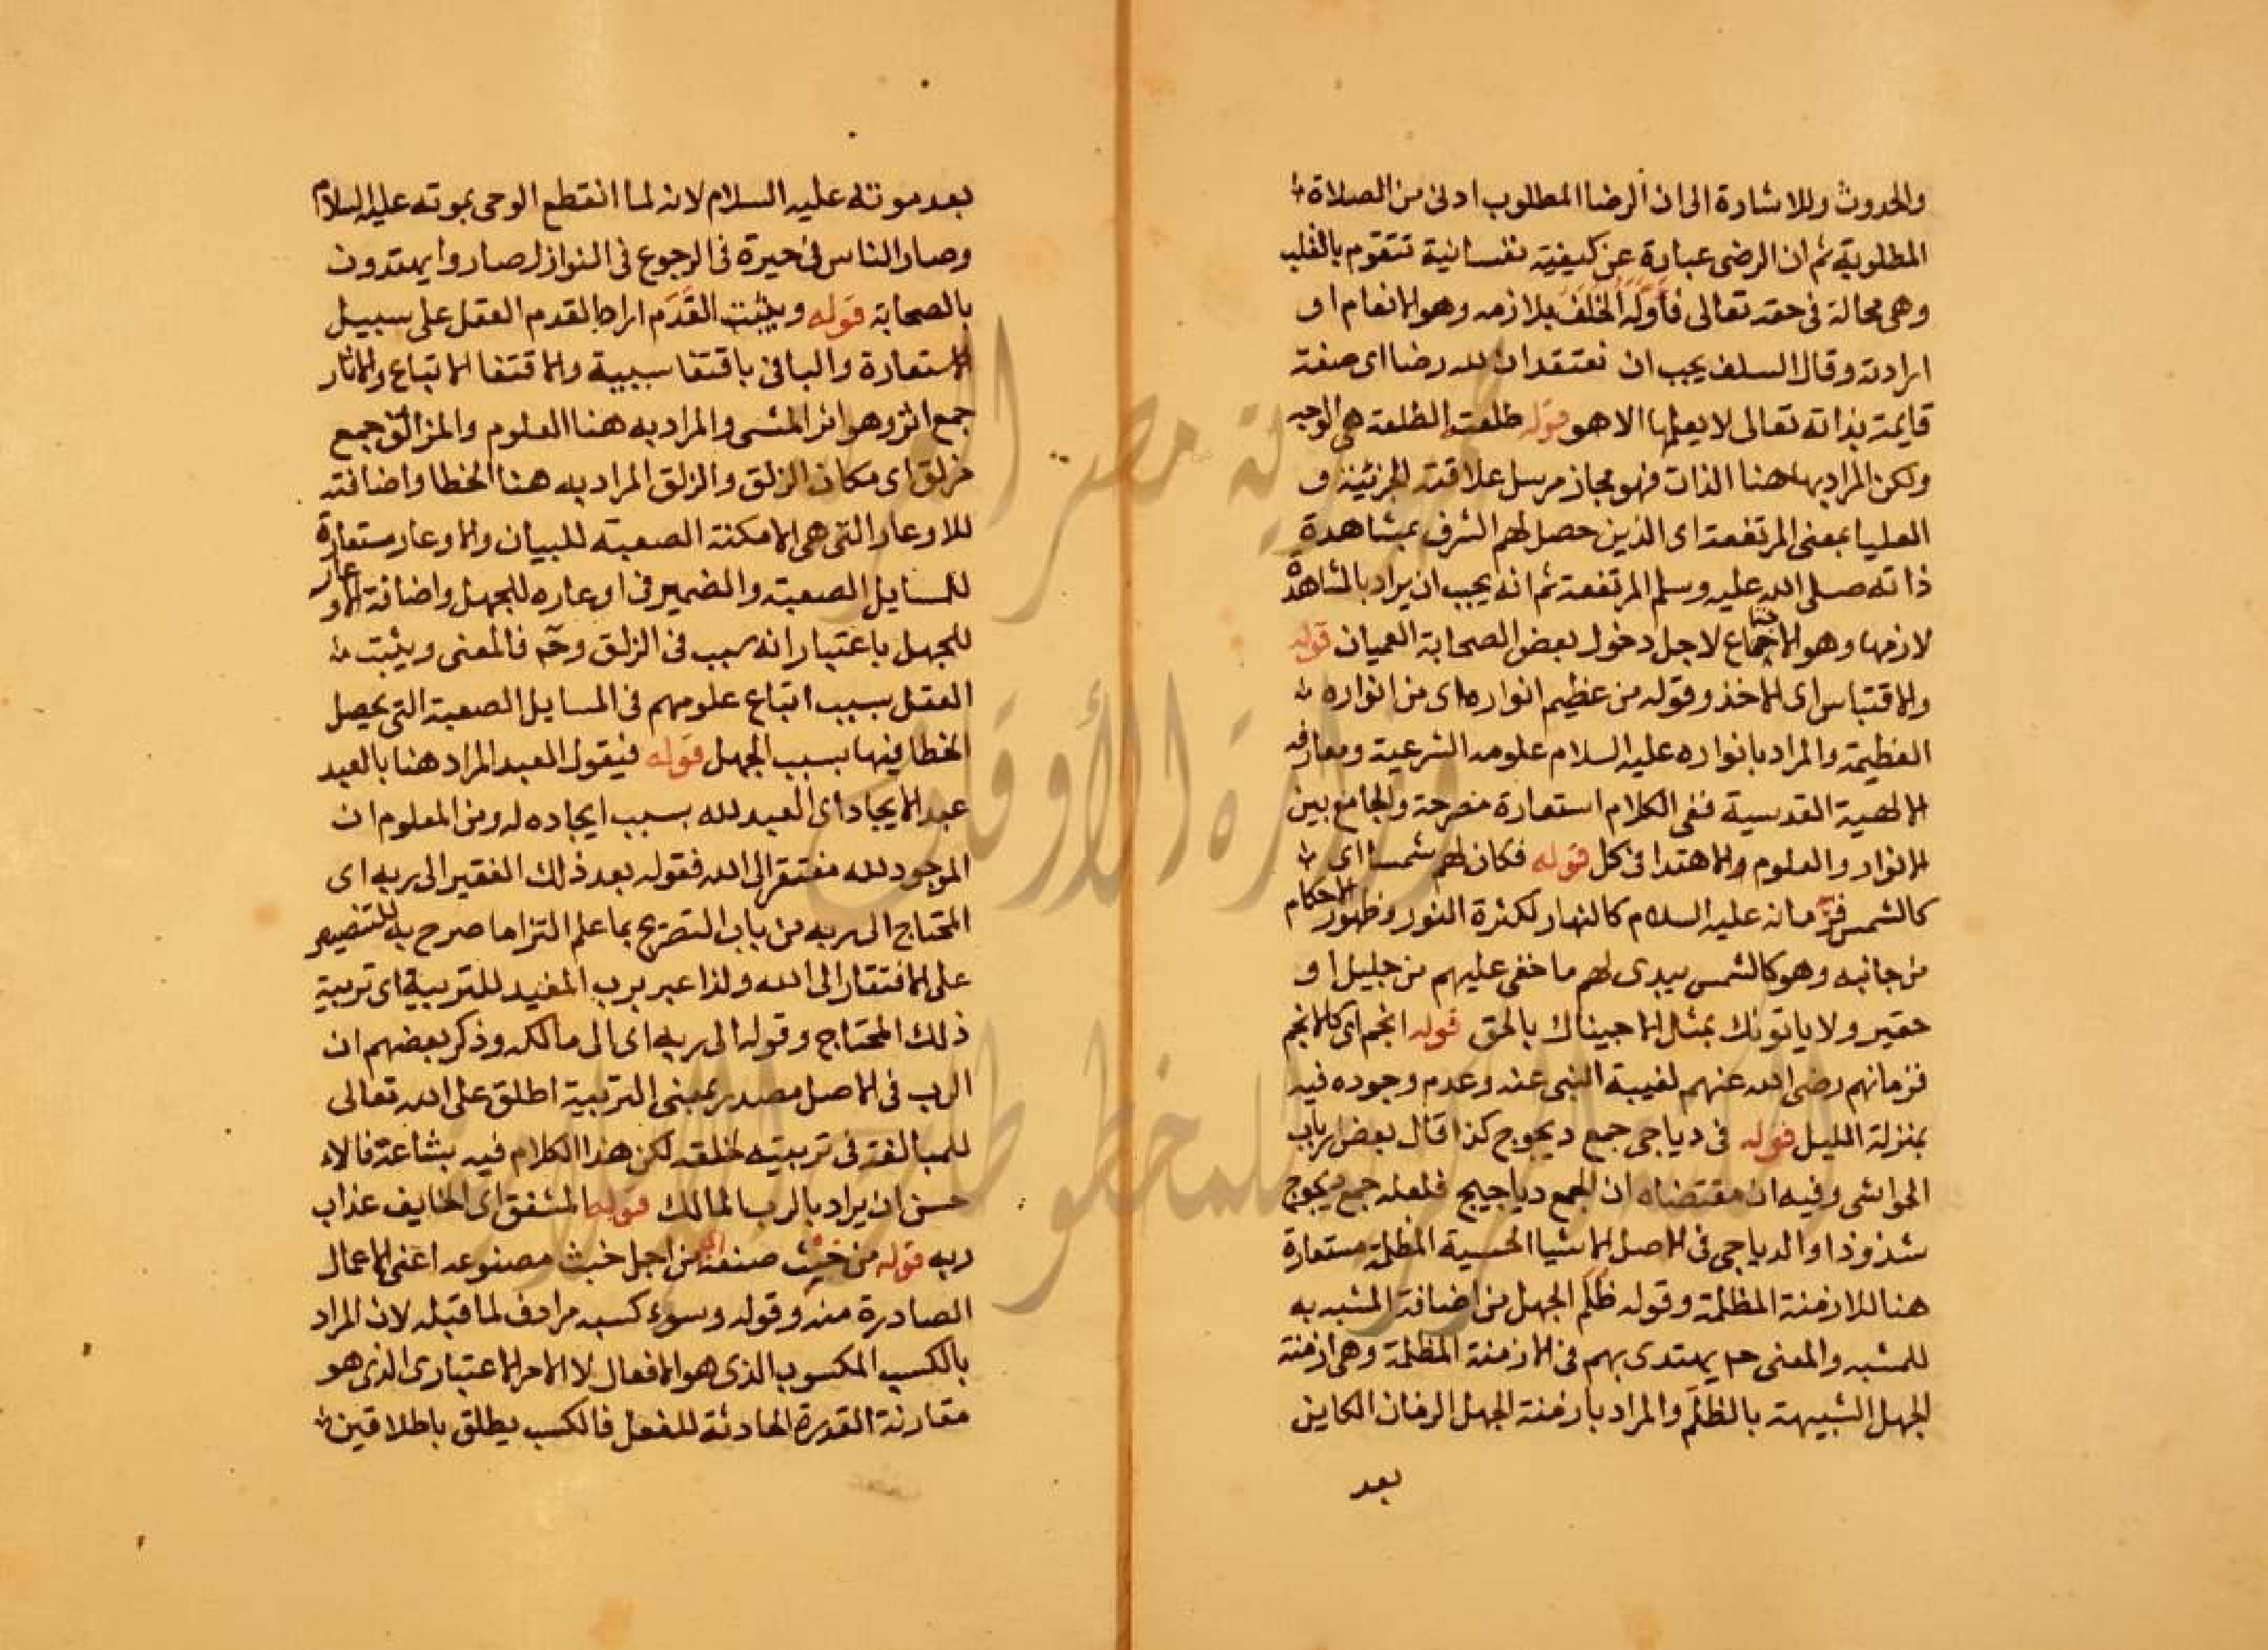 والحدوث وللاشارة الى ان الرضا المطلوب ادنى من الصلاة
المطلوبة ثم ان الرضى عبارة عن كيفية نفسانية تتقوم بالقلب
وهى محالة فى حقه تعالى فأوله الخلف بلازمه وهو الانعام او
ارادته وقال السلف يجب ان نعتقد ان لله رضا اى صفة
قايمة بذاته تعالى لا يعلمها الا هو قوله طلعته الطلعة هى الوجه
ولكن المراد بها هنا الذات فهو مجاز مرسل علاقته الجزئية و
العليا بمعنى المرتفعة اى الذين حصل لهم الشرف بمشاهدة
ذاته صلى الله عليه وسلم المرتفعة ثم انه يجب ان يراد بالمشاهدة
لازمها وهو الاجتماع لاجل دخول بعض الصحابة العميان قوله
والاقتباس اى الاخذ وقوله من عظيم انواره اى من انواره
العظيمة والمراد بانواره عليه السلام علومه الشرعية ومعارفه
الالهية القدسية ففى الكلام استعارة مصرحة والجامع بين
الانوار والعلوم والاهتدا فى كل قوله فكان لهم شمسا اى
كالشمس فزمانه عليه السلام كالنهار لكثرة النور وظهور الاحكام
من جانبه وهو كالشمس يبدى لهم ما خفى عليهم من جليل او
حقير ولا ياتونك بمثل الا جيناك بالحق قوله انجم اى كالانجم
فزمانهم رضى الله عنهم لغيبة النبى عنه وعدم وجوده فيه
بمنزلة الليل قوله فى دياجى جمع ديجوج كذا قال بعض ارباب
الحواشى وفيه ان مقتضاه ان الجمع دياجيج فلعله جمع ديجوج
شذوذا والدياجى فى الاصل الاشيا الحسية المظلمة مستعارة
هنا للازمنة المظلمة وقوله ظلم الجهل من اضافة المشبه به
للمشبه والمعنى ح يهتدى بهم فى الازمنة المظلمة وهى ازمنة
الجهل الشبيهة بالظلم والمراد بازمنة الجهل الزمان الكاين
بعد
بعد موته عليه السلام لانه لما انقطع الوحى بموته عليه السلام
وصار الناس فى حيرة فى الرجوع فى النوازل صاروا يهتدون
بالصحابة قوله ويثبت القدم اراد بالقدم العقل على سبيل
الاستعارة والبا فى باقتفا سببية والاقتفا الاتباع والاثار
جمع اثر وهو اثر المشى والمراد به هنا العلوم والمزالق جمع
مزلق اى مكان الزلق والزلق المراد به هنا الخطا واضافته
للاوعار التى هى الامكنة الصعبة للبيان والاوعار مستعارة
للمسايل الصعبة والضمير فى اوعاره للجهل واضافة الاوعار
للجهل باعتبار انه سبب فى الزلق وح فالمعنى ويثبت
العقل بسبب اتباع علومهم فى المسايل الصعبة التى يحصل
الخطا فيها بسبب الجهل قوله فيقول العبد المراد هنا بالعبد
عبد الايجاد اى العبد لله بسبب ايجاده له ومن المعلوم ان
الموجود لله مفتقر الى الله فقوله بعد ذلك الفقير الى ربه اى
المحتاج الى ربه من باب التصريح بما علم التزاما صرح به للتنصيص
على الافتقار الى الله ولذا عبر برب المفيد للتربية اى تربية
ذلك المحتاج وقوله الى ربه اى الى مالكه وذكر بعضهم ان
الرب فى الاصل مصدر بمعنى التربية اطلق على الله تعالى
للمبالغة فى تربيته لخلقه لكن هذا الكلام فيه بشاعة فالا
حسن ان يراد بالرب المالك قوله المشفق اى الخايف عذاب
ربه قوله من خبث صنعه اى من اجل خبث مصنوعه اعنى الاعمال
الصادرة منه وقوله وسوء كسبه مرادف لما قبله لان المراد
بالكسب المكسوب الذى هو الافعال لا الامر الاعتبارى الذى هو
مقارنة القدرة الحادثة للفعل فالكسب يطلق باطلاقين
جمهورية مصر العربية
وزارة الأوقاف